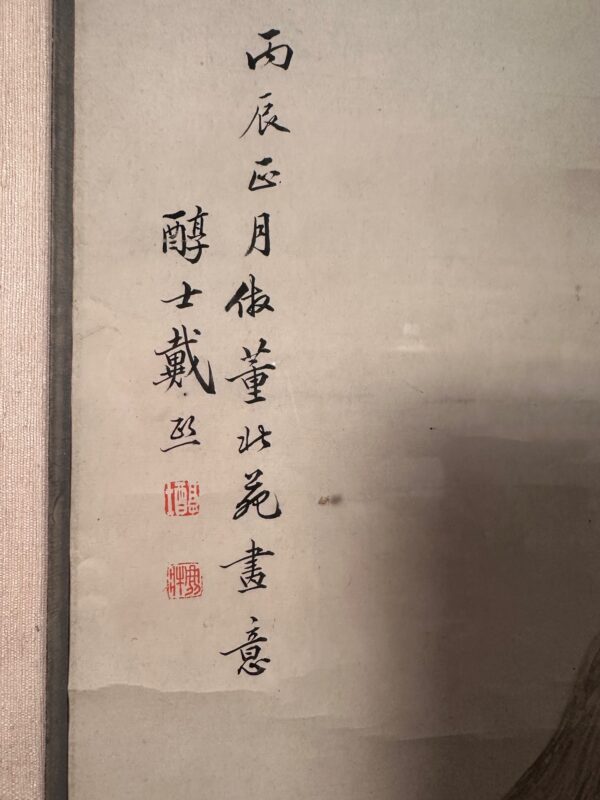 丙辰正月倣董北苑畫意
醇士戴熙